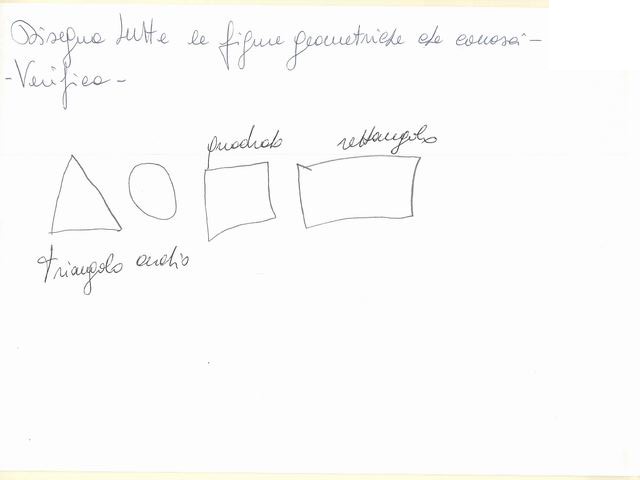 Disegna tutte le figure geometriche che conosci-
-Verifica-
quadrato rettangolo
triangolo cerchio